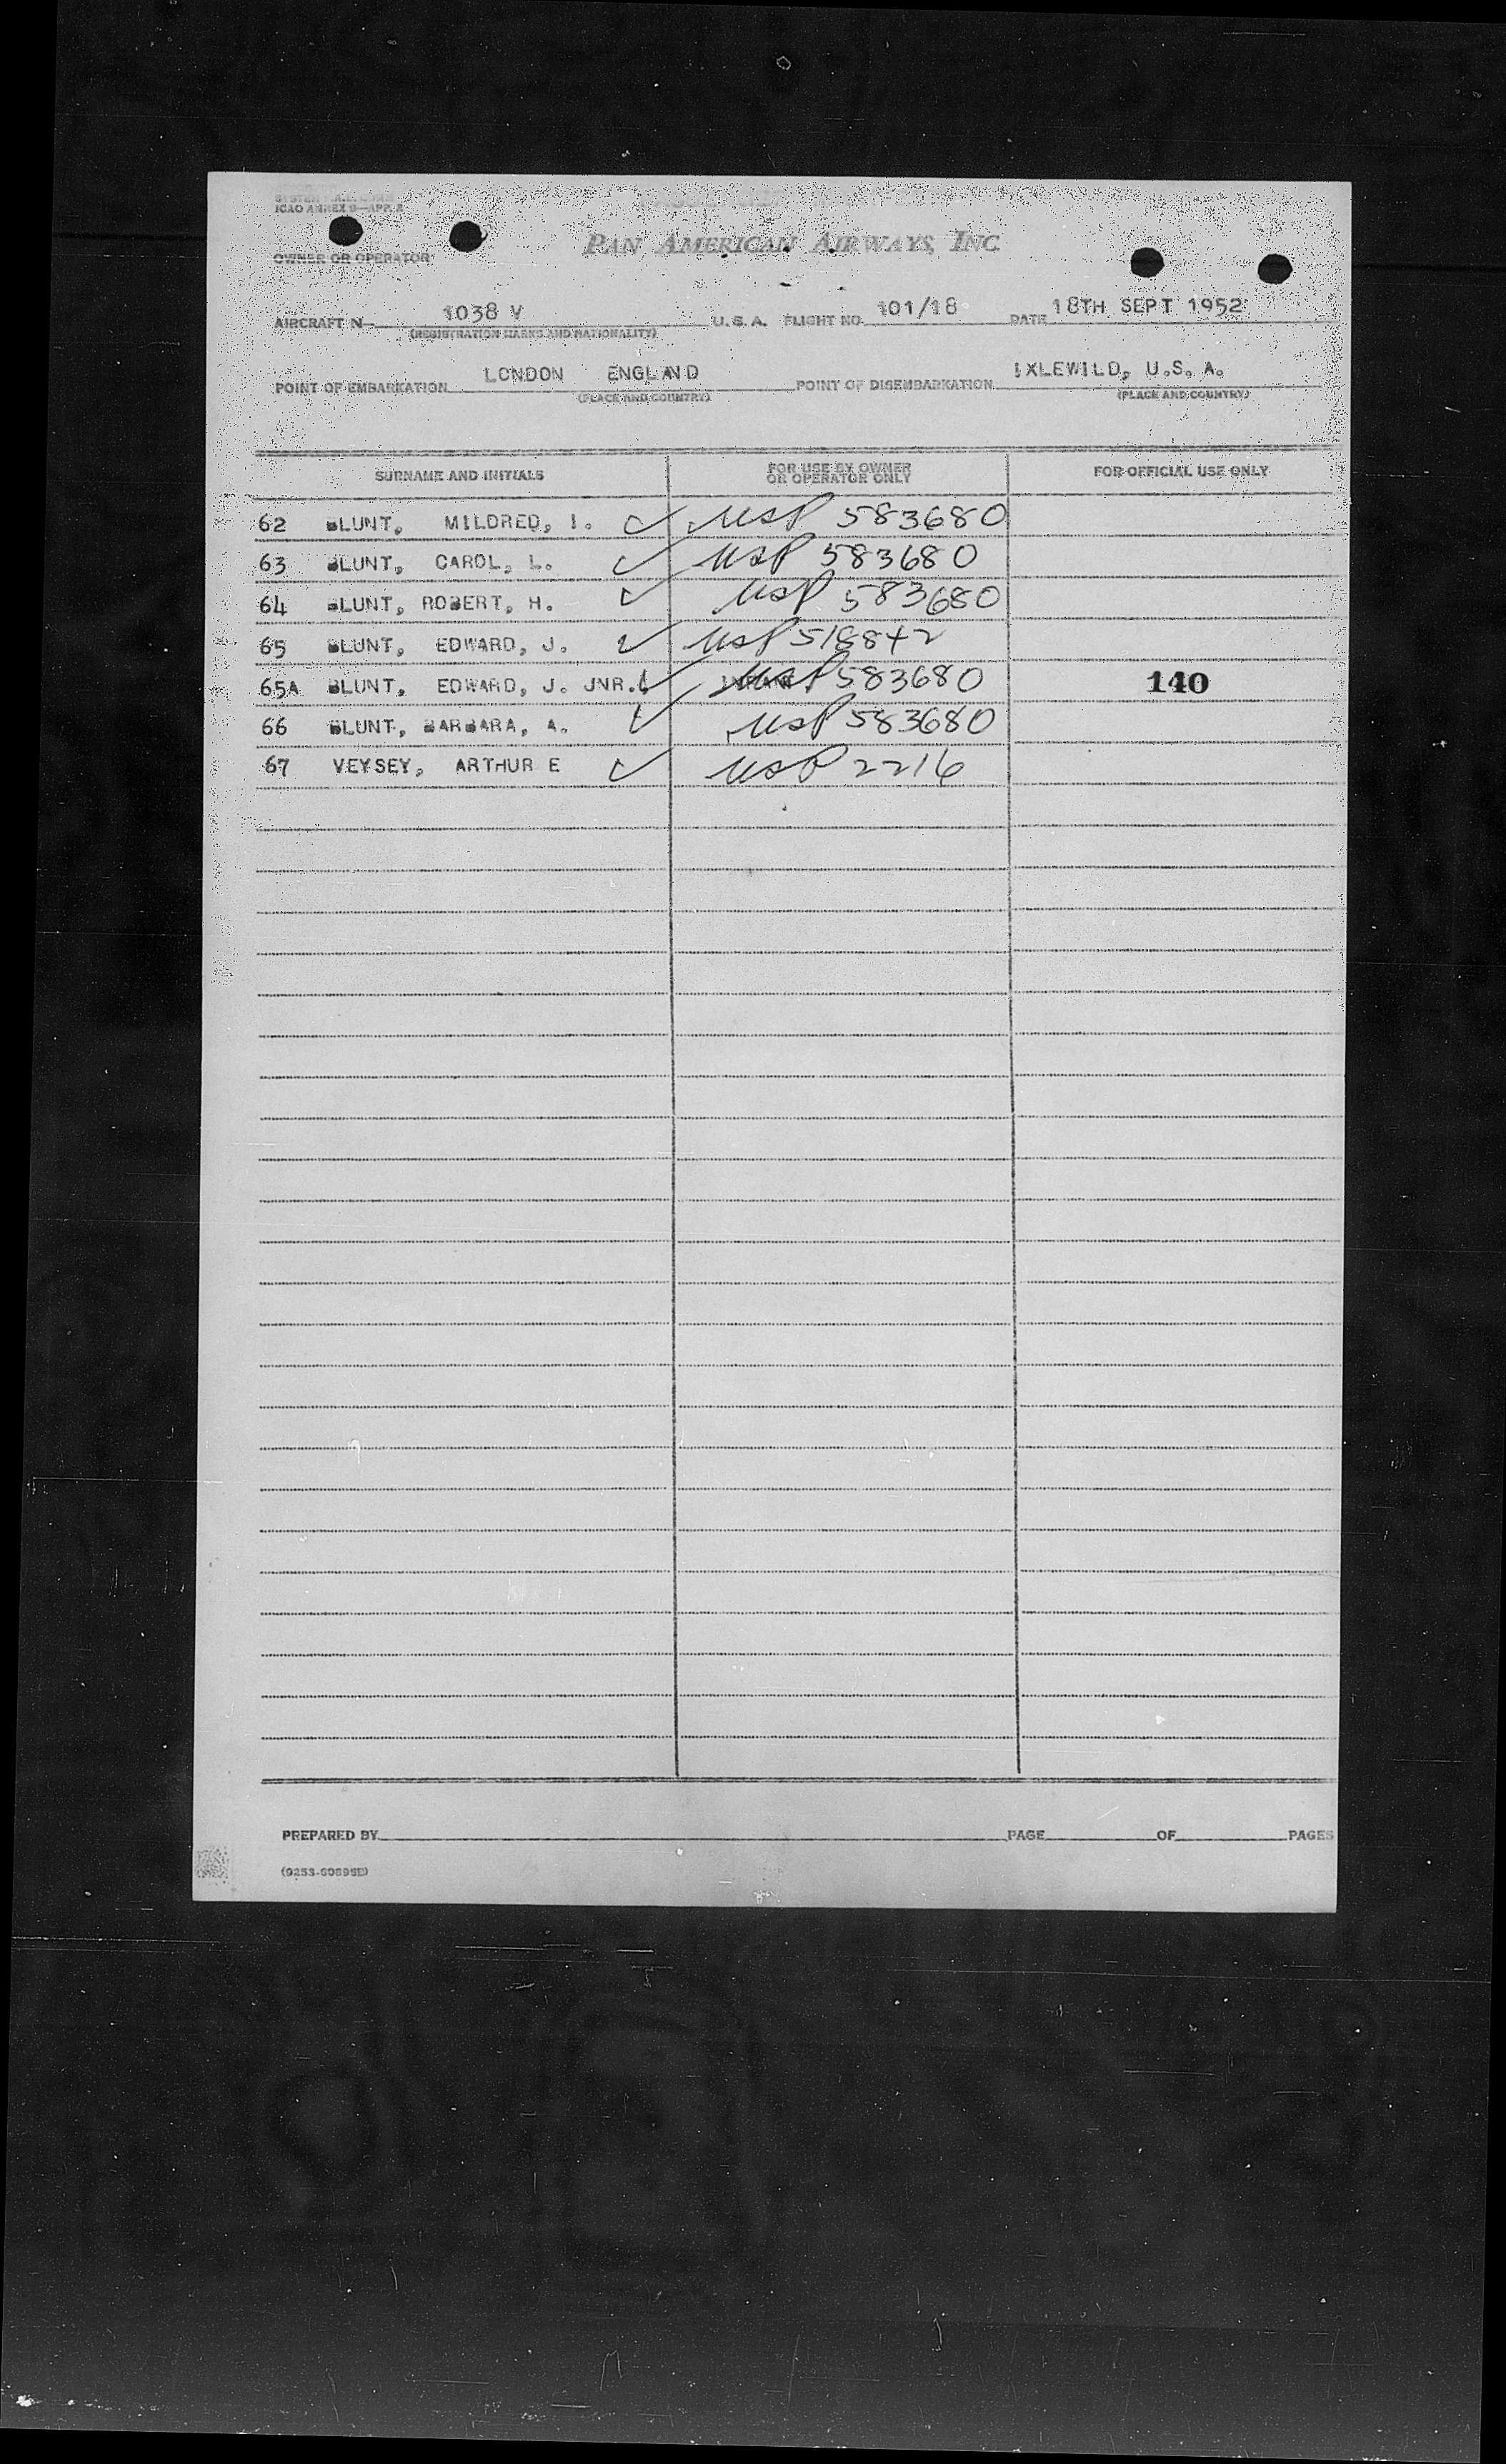 ICAO ANNEX 9—APP. 2
PAN AMERICAN AIRWAYS, INC
OWNER OR OPERATOR
AIRCRAFT N 1038 V U.S.A. FLIGHT NO. 101/18 DATE 18TH SEPT 1952
(REGISTRATION MARKS AND NATIONALITY)
POINT OF EMBARKATION LONDON ENGLAND POINT OF DISEMBARKATION IXLEWILD, U.S.A.
(PLACE AND COUNTRY) (PLACE AND COUNTRY)
SURNAME AND INITIALS FOR USE BY OWNER OR OPERATOR ONLY FOR OFFICIAL USE ONLY
62 BLUNT, MILDRED, I. USP 583680
63 BLUNT, CAROL, L. USP 583680
64 BLUNT, ROBERT, H. USP 583680
65 BLUNT, EDWARD, J. USP 518842
65A BLUNT, EDWARD, J. JNR. INFANT USP 583680 140
66 BLUNT, BARBARA, A. USP 583680
67 VEYSEY, ARTHUR E USP 2216
PREPARED BY PAGE OF PAGES